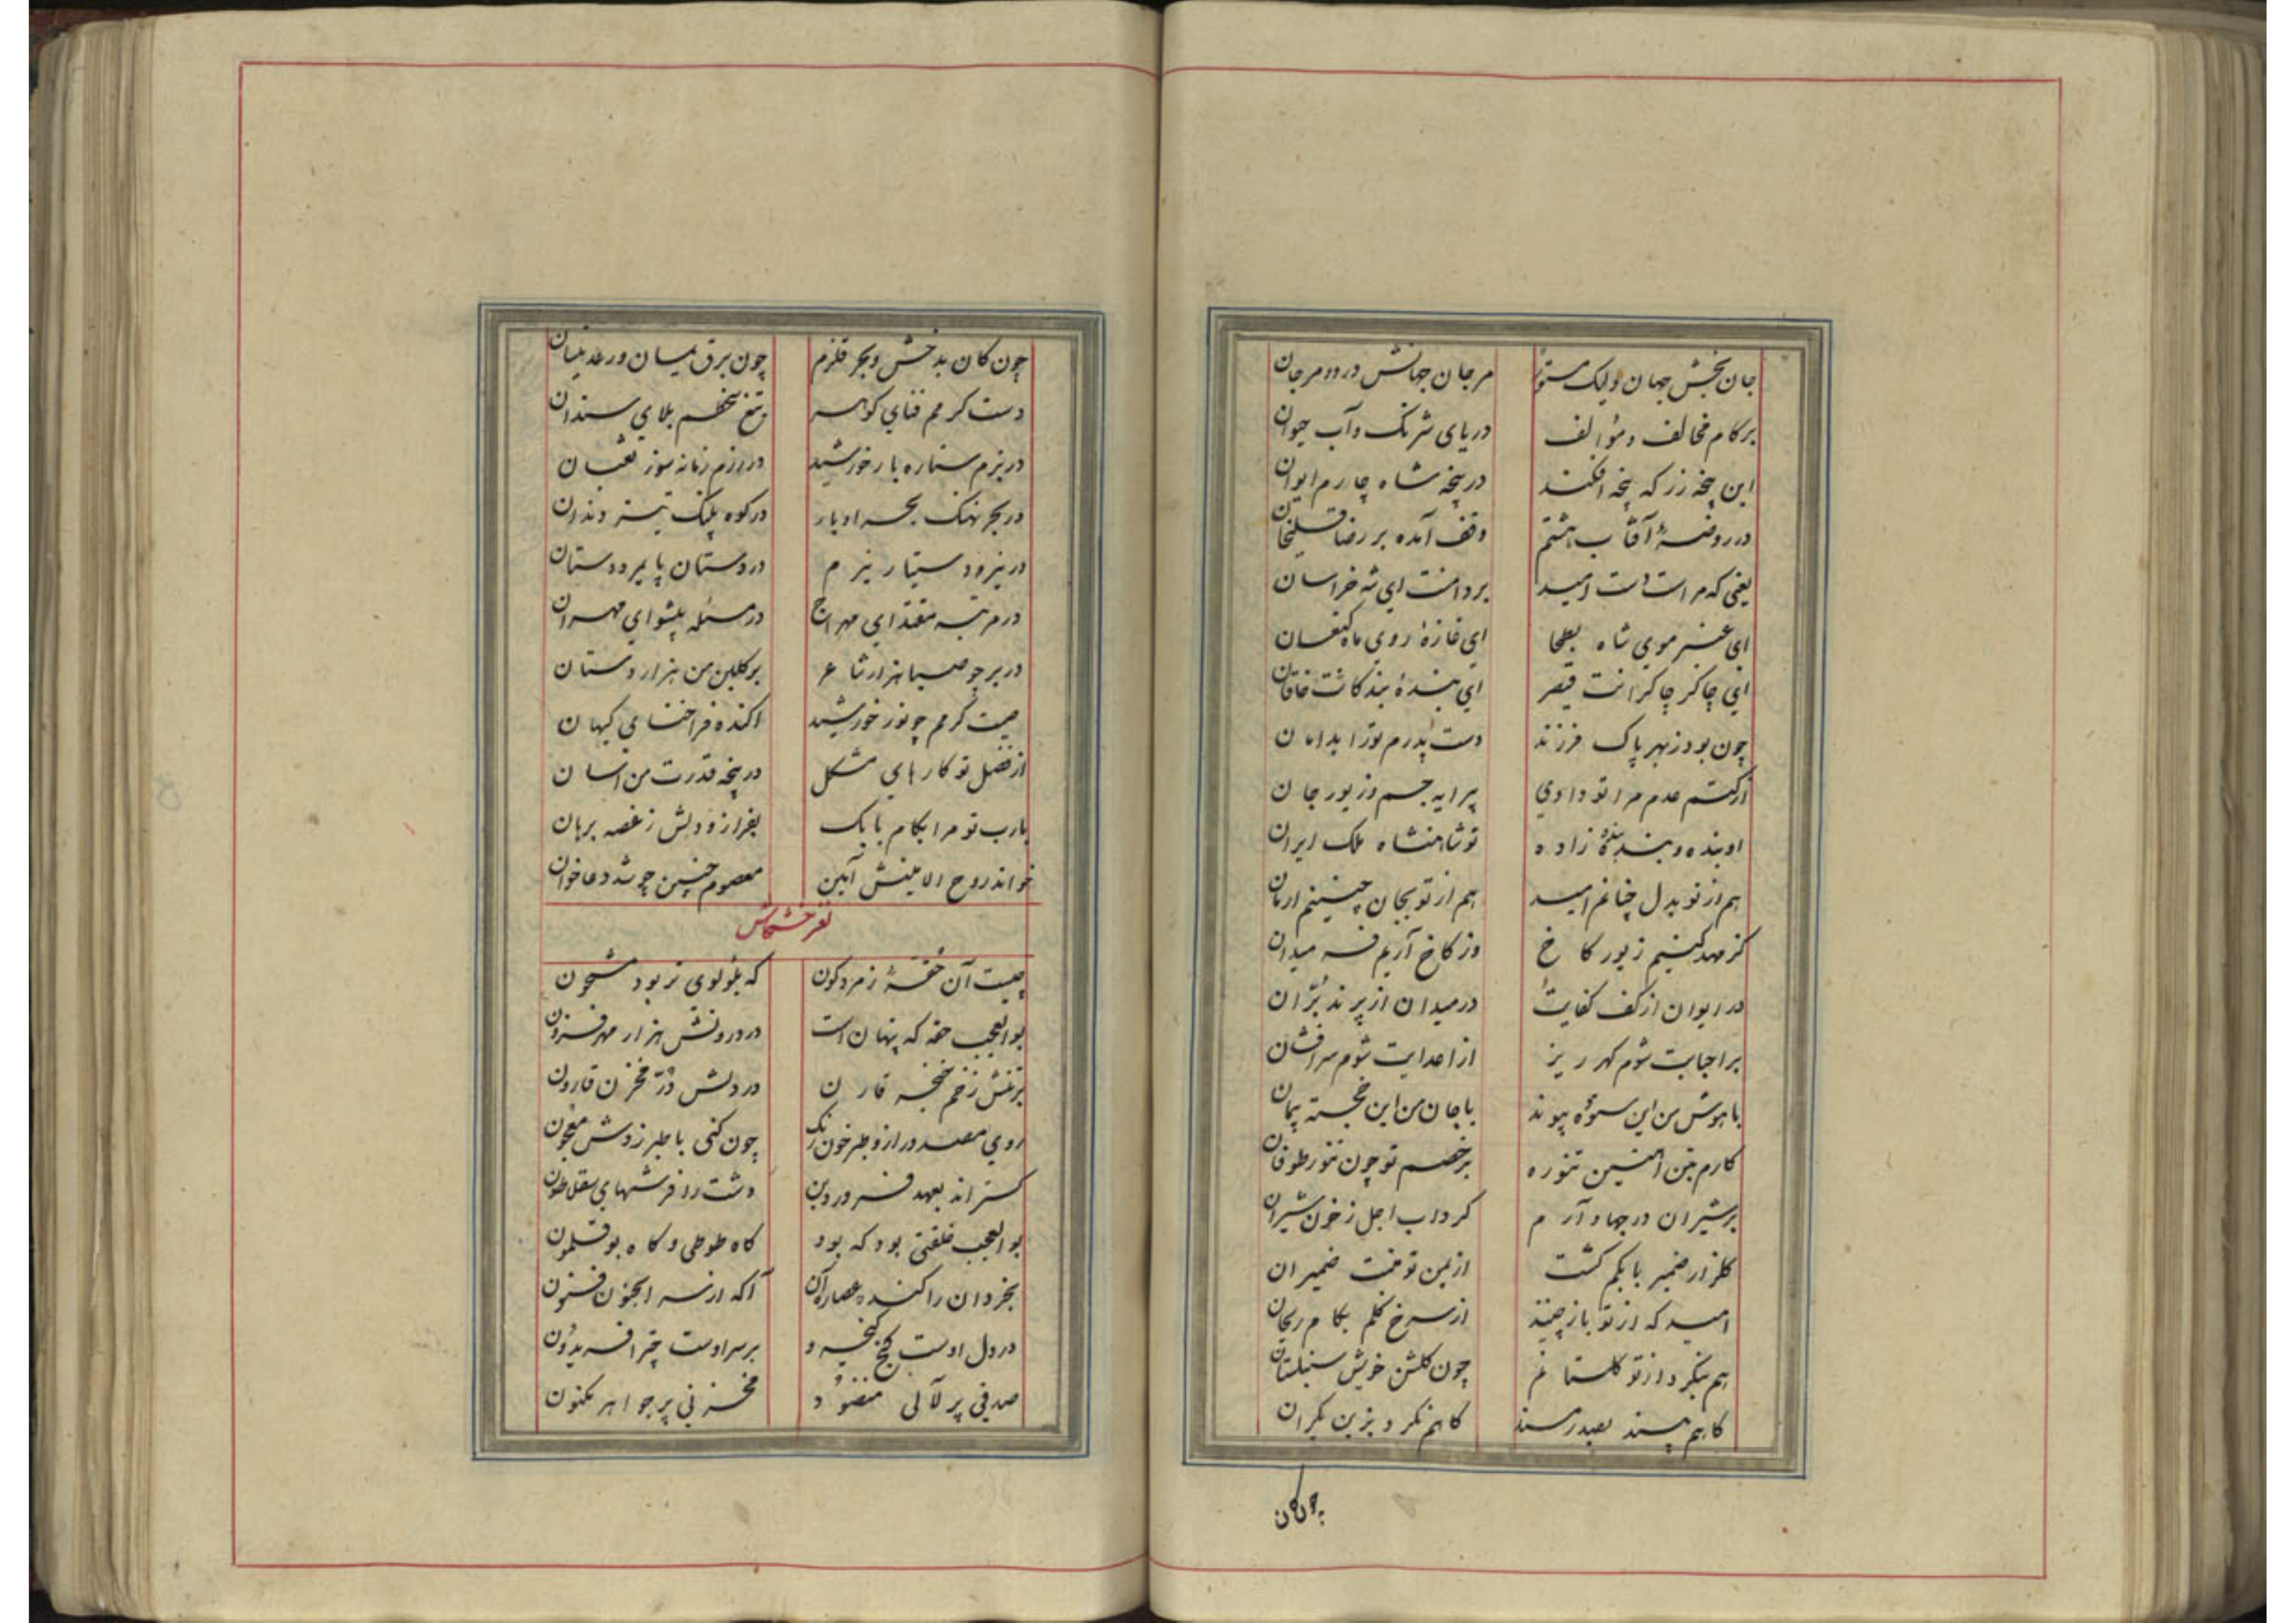 جان بخش جهان ولیک مستور مرجان جهانش در دو مرجان
بر کام مخالف و مؤالف دریای شرنک و آب حیوان
این پنجه زر که پنجه افکند در پنجه شاه چارم ایوان
در روضهٔ آفتاب هشتم وقف آمده بر رضاقلیخان
یعنی که مراست دست امید بر دامنت ای شه خراسان
ای عنبر موی شاه بطحا ای غازهٔ روی ماه کنعان
ای چاکر چاکرانت قیصر ای بندهٔ بندکانت خاقان
چون بود ز بهر پاک فرزند دست پدرم تو را بدامان
از کتم عدم مرا تو دادی پیرایه جسم و زیور جان
او بنده و بنده بندهٔ زاده تو شاهنشاه ملک ایران
هم از تو بدل چنانم امید هم از تو بجان چنینم ارمان
کز مهد کنیم زیور کاخ وز کاخ آریم فر میدان
در ایوان از کف کفایت در میدان از پرند برّان
بر احبابت شوم کهر ریز از اعدایت شوم سرافشان
با هوش من این ستوده پیوند با جان من این خجسته پیمان
کارم بتن آهنین تنوره بر خصم تو چون تنور طوفان
بر شیران در جهاد آرم کرداب اجل ز خون شیران
کلزار ضمیر بابکم کشت از یمن تو منبت ضمیران
امید که از تو باز چینند از سرخ کلم بکام ریحان
هم بنکرد از تو کلستانم چون کلشن خویش سنبلستان
کاهم بسند بصدر مسند کاهم نکرد بزین یکران
چون کان
چون کان بدخش و بحر قلزم چون برق یمان و رعد نیسان
دست کرمم فنای کوهر تیغ سخطم بلای سندان
در بزم ستاره بار خورشید در رزم زمانه سوز ثعبان
در بحر نهنک بحر اوبار در کوه پلنک تیز دندان
در نیرو دستیار نیرم در دستان پایمرد دستان
در مرتبه مقتدای مهراج در مسئله پیشوای مهران
در برجو صبا هزار شاعر بر کلبن من هزار دستان
صیت کرمم چو نور خورشید اکنده فراخنای کیهان
از فضل تو کارهای مشکل در پنجه قدرت من اسان
یارب تو مرا بکام بابک بفراز و دلش ز غصه برهان
خواند روح الامینش آمین معصوم چنین چو شد دعاخوان
لغز خشخاش
چیست آن حقهٔ زمردکون که بلؤلوی تر بود مشحون
بوالعجب حقه که پنهان است در درونش هزار مهر فزون
بر تنش زخم خنجر قارن در دلش درّ مخزن قارون
روی مصدور ازو طبرخون رنک چون کنی با طبرزدش معجون
کستراند بعهد فروردین دشت را فرشهای سقلاطون
بوالعجب خلقتی بود که بود کاه طوطی و کاه بوقلمون
بخردان را کند عصارهٔ آن آکه از سر الجنون فنون
در دل اوست کنج کیخسرو بر سر اوست چتر افریدون
صدفی پر لآلی منضود مخزنی پر جواهر مکنون